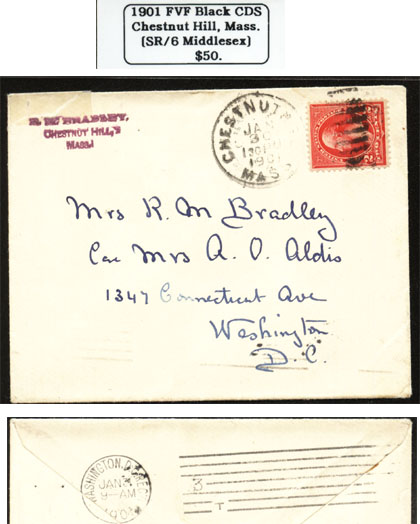 1901 FVF Black CDS
Chestnut Hill, Mass.
(SR/6 Middlesex)
$50.
R. M. BRADLEY,
CHESTNUT HILL,
MASS.
CHESTNUT
JAN
3
1901
MASS
2
Mrs R. M Bradley
Care Mrs A. O. Aldis
1347 Connecticut Ave
Washington
D.C.
WASHINGTON, D.C. REC'D
JAN
8-AM
3
T